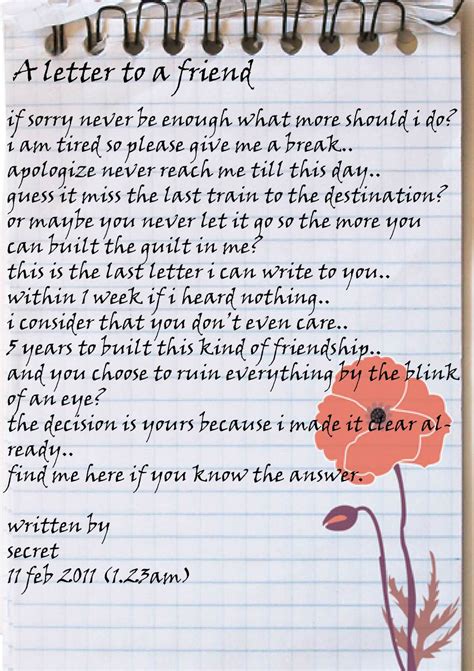 A letter to a friend
if sorry never be enough what more should i do?
i am tired so please give me a break..
apologize never reach me till this day..
guess it miss the last train to the destination?
or maybe you never let it go so the more you
can built the guilt in me?
this is the last letter i can write to you..
within 1 week if i heard nothing..
i consider that you don't even care..
5 years to built this kind of friendship..
and you choose to ruin everything by the blink
of an eye?
the decision is yours because i made it clear al-
ready..
find me here if you know the answer.
written by
secret
11 feb 2011 (1.23am)